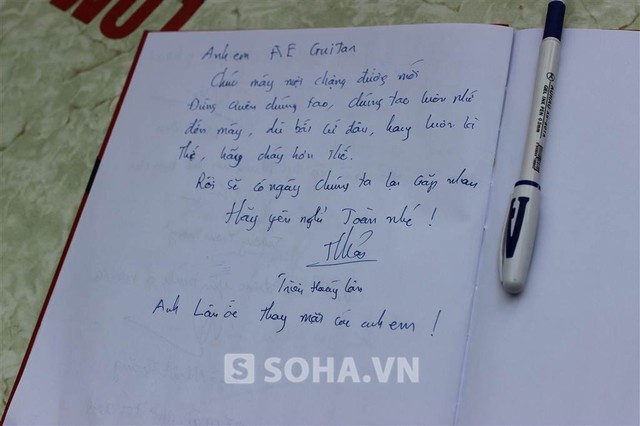 Anh em AE Guitar
Chúc mày một chặng đường mới
Đừng quên chúng tao, chúng tao luôn nhớ
đến mày, dù bất cứ đâu, hay luôn là
thế, hãy cháy hơn thế.
Rồi sẽ có ngày chúng ta lại gặp nhau
Hãy yên nghỉ Toàn nhé !
Triệu Hoàng Lân
Anh Lân ốc thay mặt các anh em !
S SOHA.VN